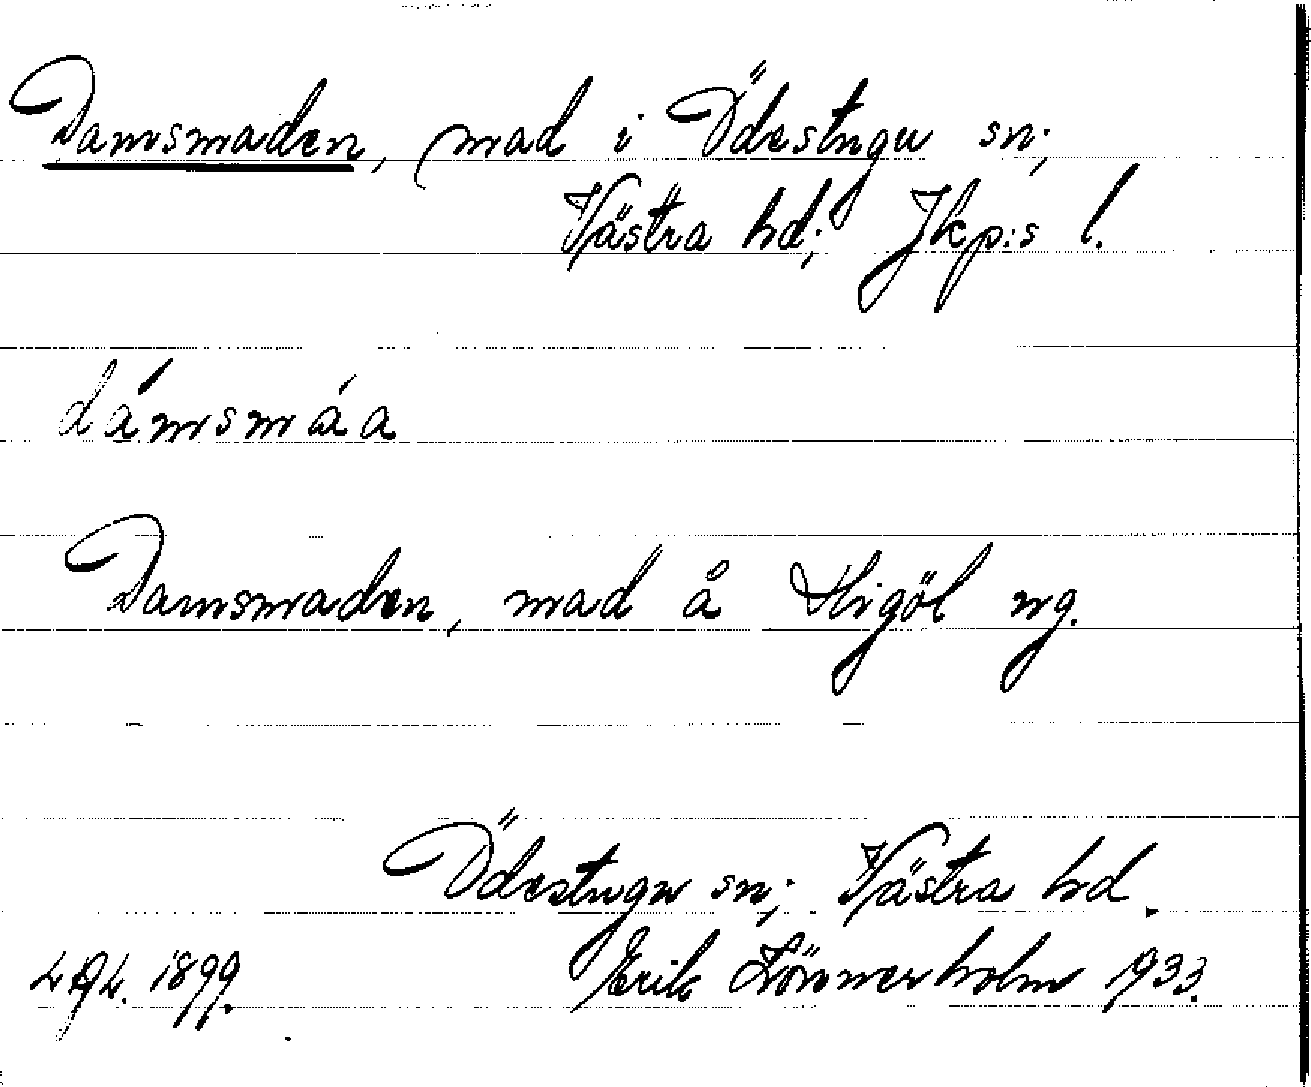 Damsmaden, mad i Ödestugu sn;
Västra hd; Jkp:s l.
dámsmáa
Damsmaden, mad å Stigöl äg.
Ödestugu sn; Västra hd.
1899. Erik 1933.